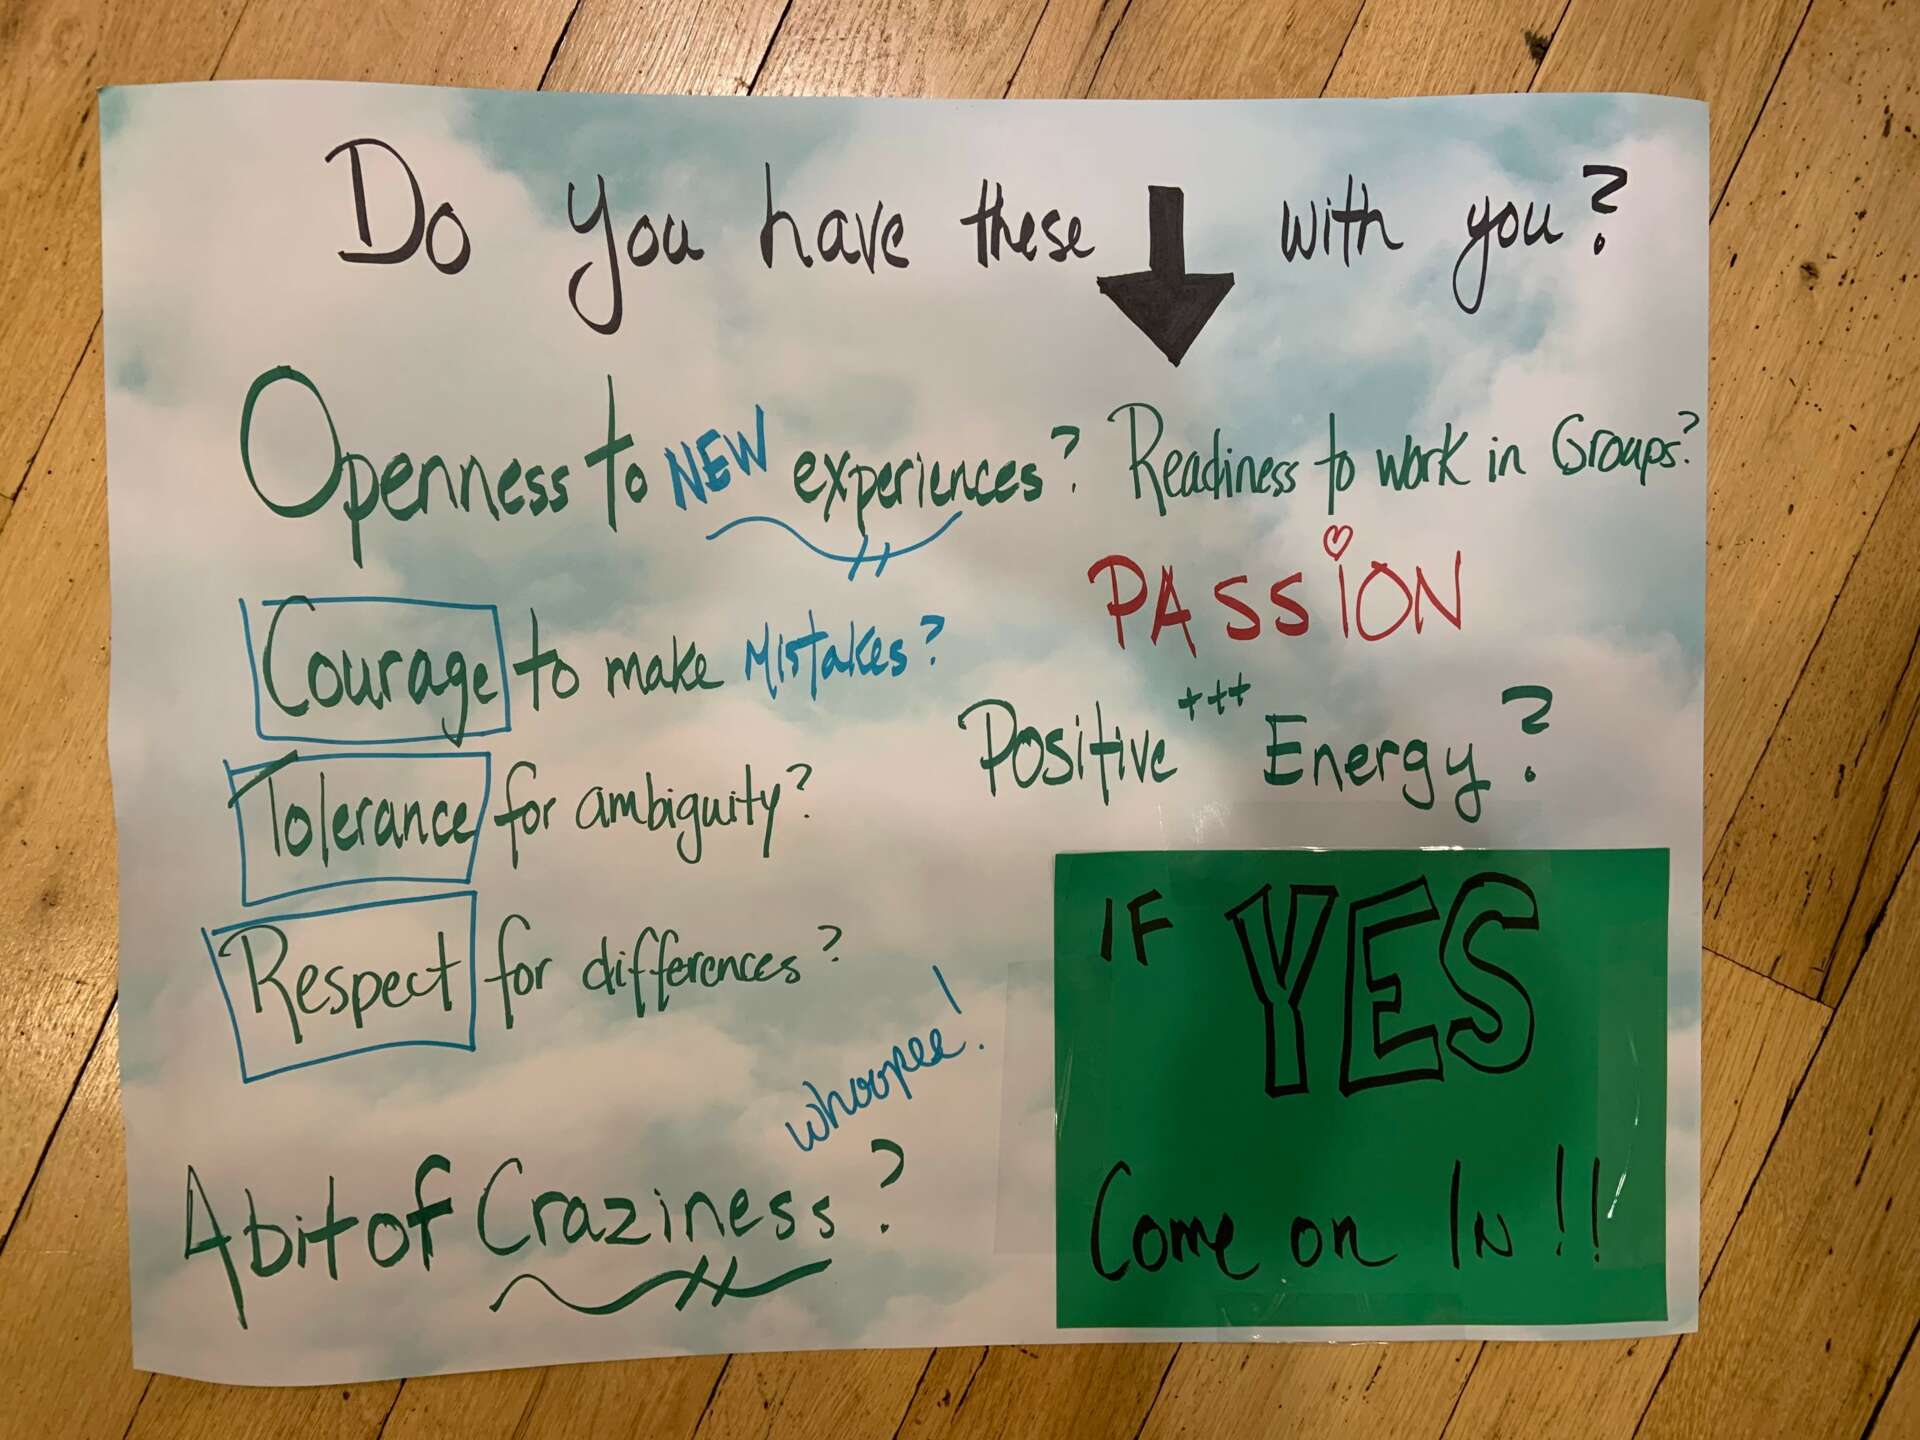 Do you have these ⬇ with you?
Openness to NEW experiences?
Readiness to work in Groups?
PASSiON
Courage to make Mistakes?
Positive +++ Energy?
Tolerance for ambiguity?
Respect for differences?
whoopee!
A bit of Craziness?
IF YES
Come on IN!!